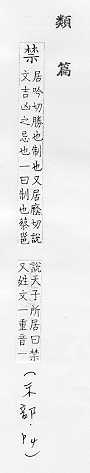 類篇
禁
居吟切勝也制也又居廕切說
文吉凶之忌也一曰制也蔡邕
說天子所居曰禁
又姓文一重音一
(示部·P4)